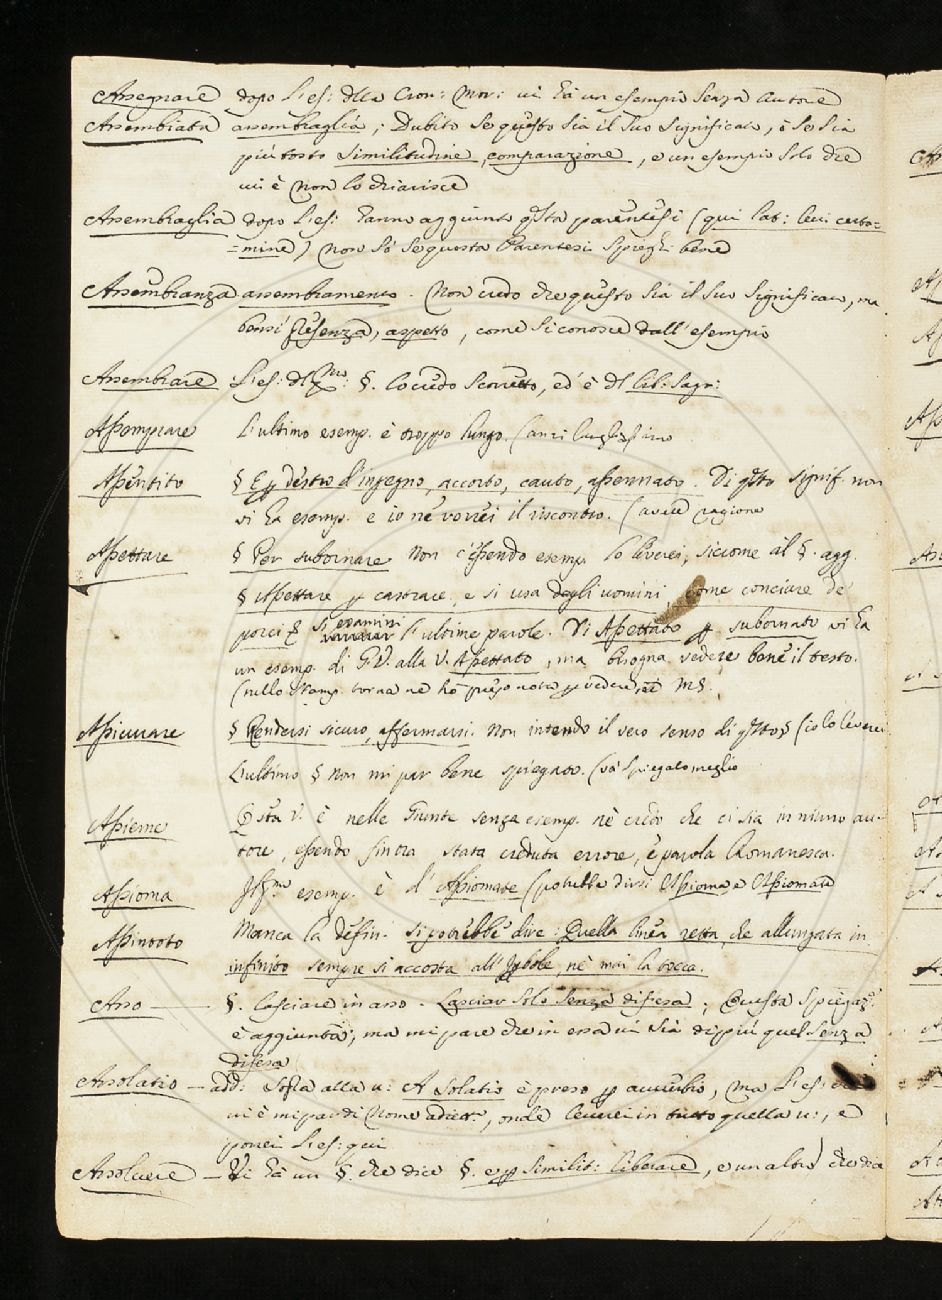 Assegnare dopo l'es: dlla Cron: Mor: vi hà un esempio senza Autore
Assembiata assembraglia; Dubito se questo sia il suo significato, è se sia
più tosto similitudine, comparazione, e un esempio solo che
vi è non lo chiarisce
Assembraglia dopo l'es: hanno aggiunto qsta parentesi (qui lat: levi certa=
=mine) non sò se questa Parentesi spieghi bene
Assembranza assembramento. Non credo che questo sia il suo significato, ma
bensì presenza, aspetto, come si conosce dall'esempio
Assembrare §. lo credo scorretto, ed è dl lib: Sagr:
Assemprare L'ultimo esemp. è troppo lungo. (anzi lunghissimo
Assentito § E p destro d'ingegno, accorto, cauto, assennato. Di qsto signif. non
vi ha esemp. e io ne vorrei il riscontro. (avete ragione
Assettare § Per subornare non c'essendo esemp. lo leverei, siccome al §. agg.
§ Assettare p castrare, e si usa degli uomini, come conciare de'
porci & si esamini l'ultime parole. Di Assettato p subornato vi ha
un esemp. di G.V. alla V. Assettato, ma bisogna vedere bene il testo.
(nello stamp. torna ne ho preso nota p vedere
Assicurare § Rendersi sicuro, affermarsi. Non intendo il vero senso di qsto § (io lo leverei
L'ultimo § non mi par bene spiegato. (và spiegato meglio
Assieme Qsta V. è nelle Giunte senza esemp. nè credo che ci sia in niuno au-
tore, essendo finora stata creduta errore, e parola Romanesca.
Assioma esemp. è d'Assiomate (potrebbe dirsi Assioma, e Assiomate
Assintoto Manca la defin. si potrebbe dire: Quella linea retta, che allungata in
infinito sempre si accosta all'Iperbole, nè mai la tocca.
Asso §. lasciare in asso. Lasciar solo senza difesa; Questa spiegaz:
è aggiunta; ma mi pare che in essa vi sia di più quel senza
difesa
Assolatio — add: Sotto alla v: A Solatio è preso p avverbio, ma l'es:
vi è mi par di Nome adiett:, onde leverei in tutto quella v:, e
porrei l'es: qui
Assolvere — Vi hà un §. che dice §. e p similit: liberare, e un altro che dice